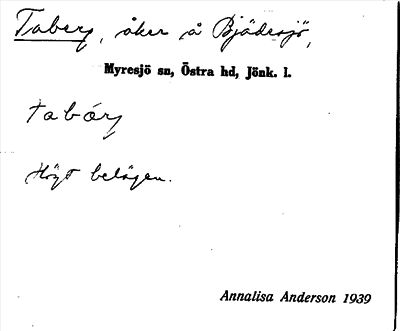 Taberg, åker å Bjädesjö,
Myresjö sn, Östra hd, Jönk. l.
tabärj
Högt belägen.
Annalisa Anderson 1939